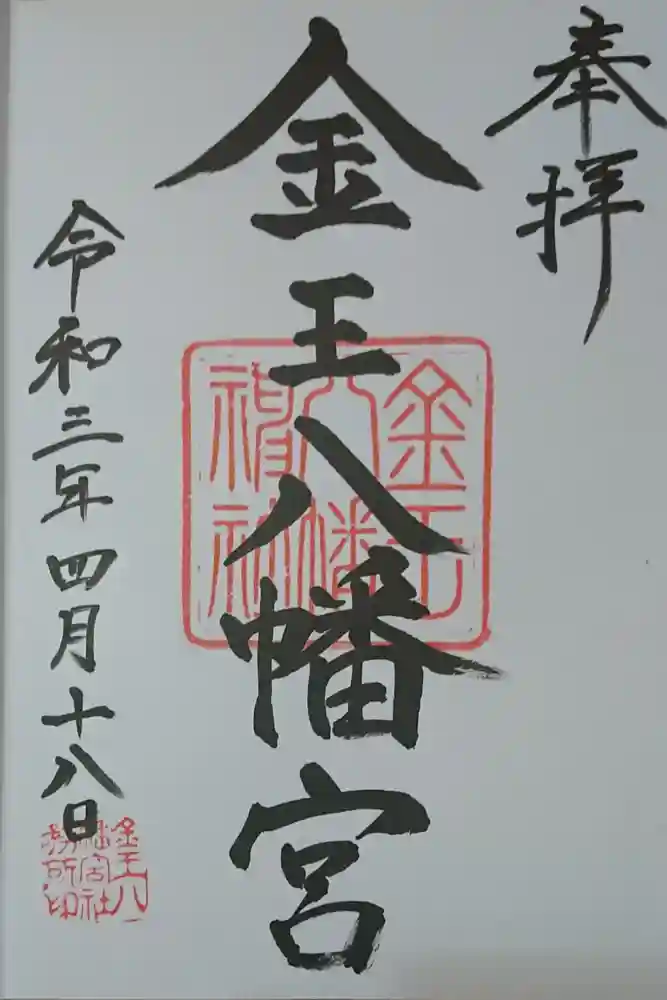 奉拝
金王八幡宮
令和三年四月十八日
金王
八幡
金王八
幡宮社
務所印